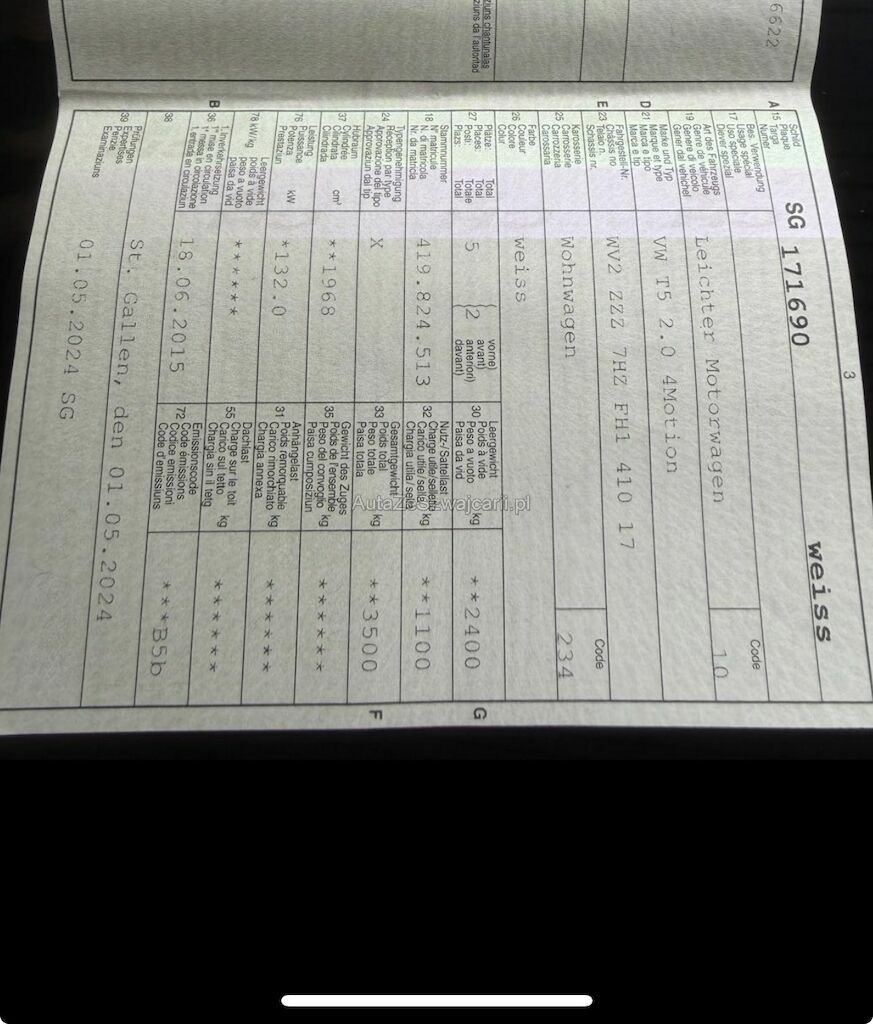 6622
uns chantunalas
ziuns da l'autoritad
3
A 15 Schild
Plaque
Targa
Numer
SG 171690
weiss
17 Bes. Verwendung
Usage spécial
Uso speciale
Diever spezial
Code
19 Art des Fahrzeugs
Genre de véhicule
Genere di veicolo
Gener dal vehichel
Leichter Motorwagen
10
D 21 Marke und Typ
Marque et type
Marca e tipo
Marca e tip
VW T5 2.0 4Motion
E 23 Fahrgestell-Nr.
Châssis no
Telaio n.
Schassis nr.
WV2 ZZZ 7HZ FH1 410 17
25 Karosserie
Carrosserie
Carrozzeria
Carossaria
Wohnwagen
Code
234
26 Farbe
Couleur
Colore
Colur
weiss
27 Plätze: Total
Places: Total
Posti: Totale
Plazs: Total
5
(2
vorne)
avant)
anterion)
davant)
30 Leergewicht
Poids à vide
Peso a vuoto kg
Paisa da vid
**2400
G
18 Stammnummer
N° matricule
N. di matricola
Nr. da matricla
419.824.513
32 Nutz-/Sattellast
Charge utile/sellette
Carico utile/sella kg
Chargia utila/sella
**1100
24 Typengenehmigung
Réception par type
Approvazione del tipo
Approvaziun da tip
X
33 Gesamtgewicht
Poids total
Peso totale kg
Paisa totala
**3500
F
37 Hubraum
Cylindrée
Cilindrata cm³
Cilindrada
**1968
35 Gewicht des Zuges
Poids de l'ensemble
Peso del convoglio kg
Paisa cumposiziun
******
76 Leistung
Puissance
Potenza kW
Prestaziun
*132.0
31 Anhängelast
Poids remorquable
Carico rimorchiato kg
Chargia annexa
******
78 kW/kg Leergewicht
poids à vide
peso a vuoto
paisa da vid
******
55 Dachlast
Charge sur le toit
Carico sul tetto kg
Chargia sin il tetg
******
B 36 1. Inverkehrsetzung
1re mise en circulation
1a messa in circolazione
1. entrada en circulaziun
18.06.2015
72 Emissionscode
Code émissions
Codice emissioni
Code d'emissiuns
***B5b
38
St. Gallen, den 01.05.2024
39 Prüfungen
Expertises
Perizie
Examinaziuns
01.05.2024 SG
AutazeSzwajcarii.pl